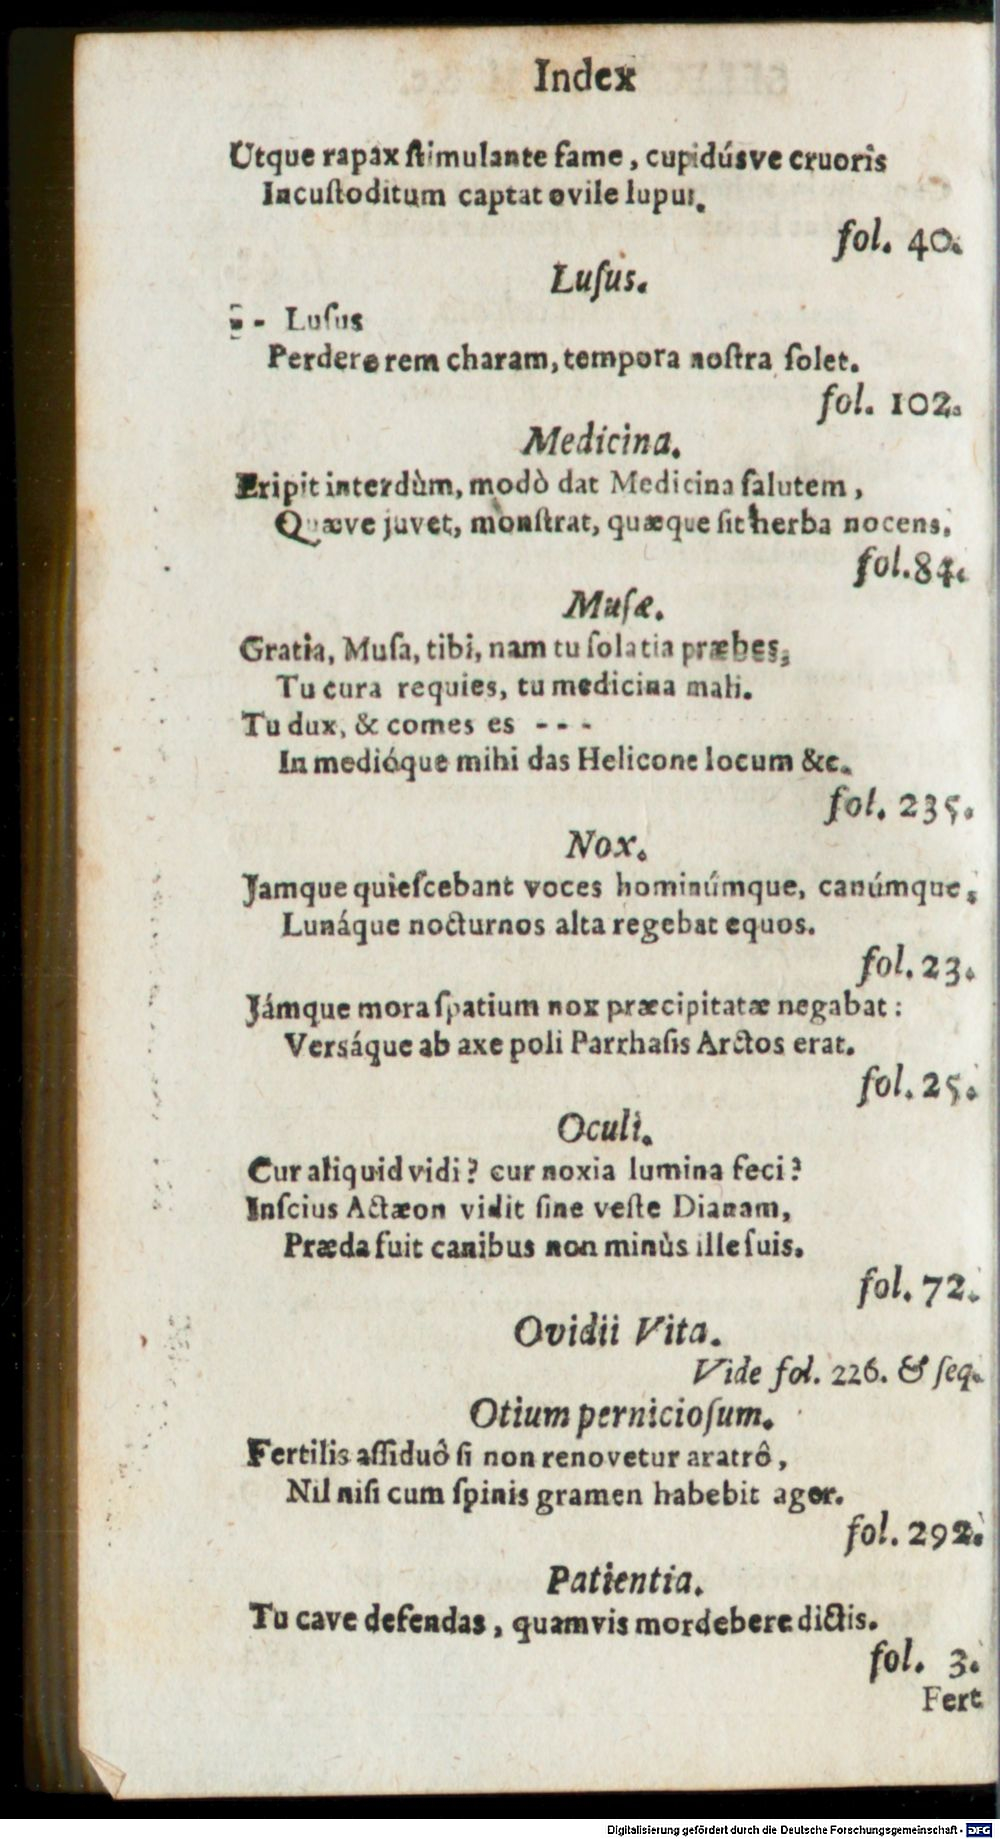 Index
Utque rapax ſtimulante fame, cupidúsve cruoris
Incuſtoditum captat ovile lupus.
fol. 40.
Luſus.
- - Luſus
Perdere rem charam, tempora noſtra ſolet.
fol. 102.
Medicina.
Eripit interdùm, modò dat Medicina ſalutem,
Quæve juvet, monſtrat, quæque ſit herba nocens.
fol. 84.
Muſæ.
Gratia, Muſa, tibi, nam tu ſolatia præbes,
Tu cura requies, tu medicina mali.
Tu dux, & comes es - - -
In medióque mihi das Helicone locum &c.
fol. 235.
Nox.
Jamque quieſcebant voces hominúmque, canúmque,
Lunáque nocturnos alta regebat equos.
fol. 23.
Jámque mora ſpatium nox præcipitatæ negabat:
Versáque ab axe poli Parrhaſis Arctos erat.
fol. 25.
Oculi.
Cur aliquid vidi? cur noxia lumina feci?
Inſcius Actæon vidit ſine veſte Dianam,
Præda fuit canibus non minùs ille ſuis.
fol. 72.
Ovidii Vita.
Vide fol. 226. & ſeq.
Otium pernicioſum.
Fertilis aſſiduô ſi non renovetur aratrô,
Nil niſi cum ſpinis gramen habebit ager.
fol. 292.
Patientia.
Tu cave defendas, quamvis mordebere dictis.
fol. 3.
Fert
Digitalisierung gefördert durch die Deutsche Forschungsgemeinschaft - DFG